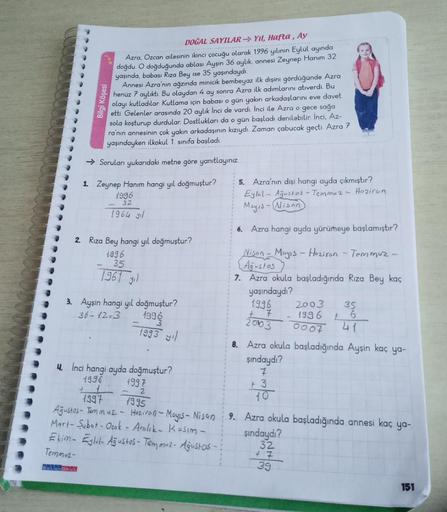 DOĞAL SAYILAR → Yıl, Hafta, Ay
Bilgi Köşesi
Azra, Özcan ailesinin ikinci çocuğu olarak 1996 yılının Eylül ayında
doğdu. O doğduğunda ablası Ayşin 36 aylık, annesi Zeynep Hanım 32
yaşında, babası Rıza Bey ise 35 yaşındaydı.
Annesi Azra'nın ağzında minicik bembeyaz ilk dişini gördüğünde Azra
henüz 7 aylıktı. Bu olaydan 4 ay sonra Azra ilk adımlarını atıverdi. Bu
olayı kutladılar. Kutlama için babası o gün yakın arkadaşlarını eve davet
etti. Gelenler arasında 20 aylık İnci de vardı. İnci ile Azra o gece sağa
sola koşturup durdular. Dostlukları da o gün başladı denilebilir. İnci, Az-
ra'nın annesinin çok yakın arkadaşının kızıydı. Zaman çabucak geçti. Azra 7
yaşındayken ilkokul 1. sınıfa başladı.
→ Soruları yukarıdaki metne göre yanıtlayınız.
1. Zeynep Hanım hangi yıl doğmuştur?
1996
- 32
1964 yıl
2. Rıza Bey hangi yıl doğmuştur?
1996
- 35
1961 yıl
3. Ayşin hangi yıl doğmuştur?
36-12=3 1996
- 3
1993 yıl
4. İnci hangi ayda doğmuştur?
1996 1997
+ 1 - 2
1997 1995
Ağustos- Temmuz - Haziran - Mayıs- Nisan
Mart- Şubat- Ocak - Aralık- Kasım -
Ekim- Eylül- Ağustos- Temmuz- Ağustos-
Temmuz-
5. Azra'nın dişi hangi ayda çıkmıştır?
Eylül- Ağustos - Temmuz - Haziran
Mayıs- Nisan
6. Azra hangi ayda yürümeye başlamıştır?
Nisan - Mayıs - Haziran - Temmuz -
Ağustos
7. Azra okula başladığında Rıza Bey kaç
yaşındaydı?
1996 2003 35
+ 7 - 1996 + 6
2003 0007 41
8. Azra okula başladığında Ayşin kaç ya-
şındaydı?
7
+ 3
10
9. Azra okula başladığında annesi kaç ya-
şındaydı?
32
+ 7
39
151